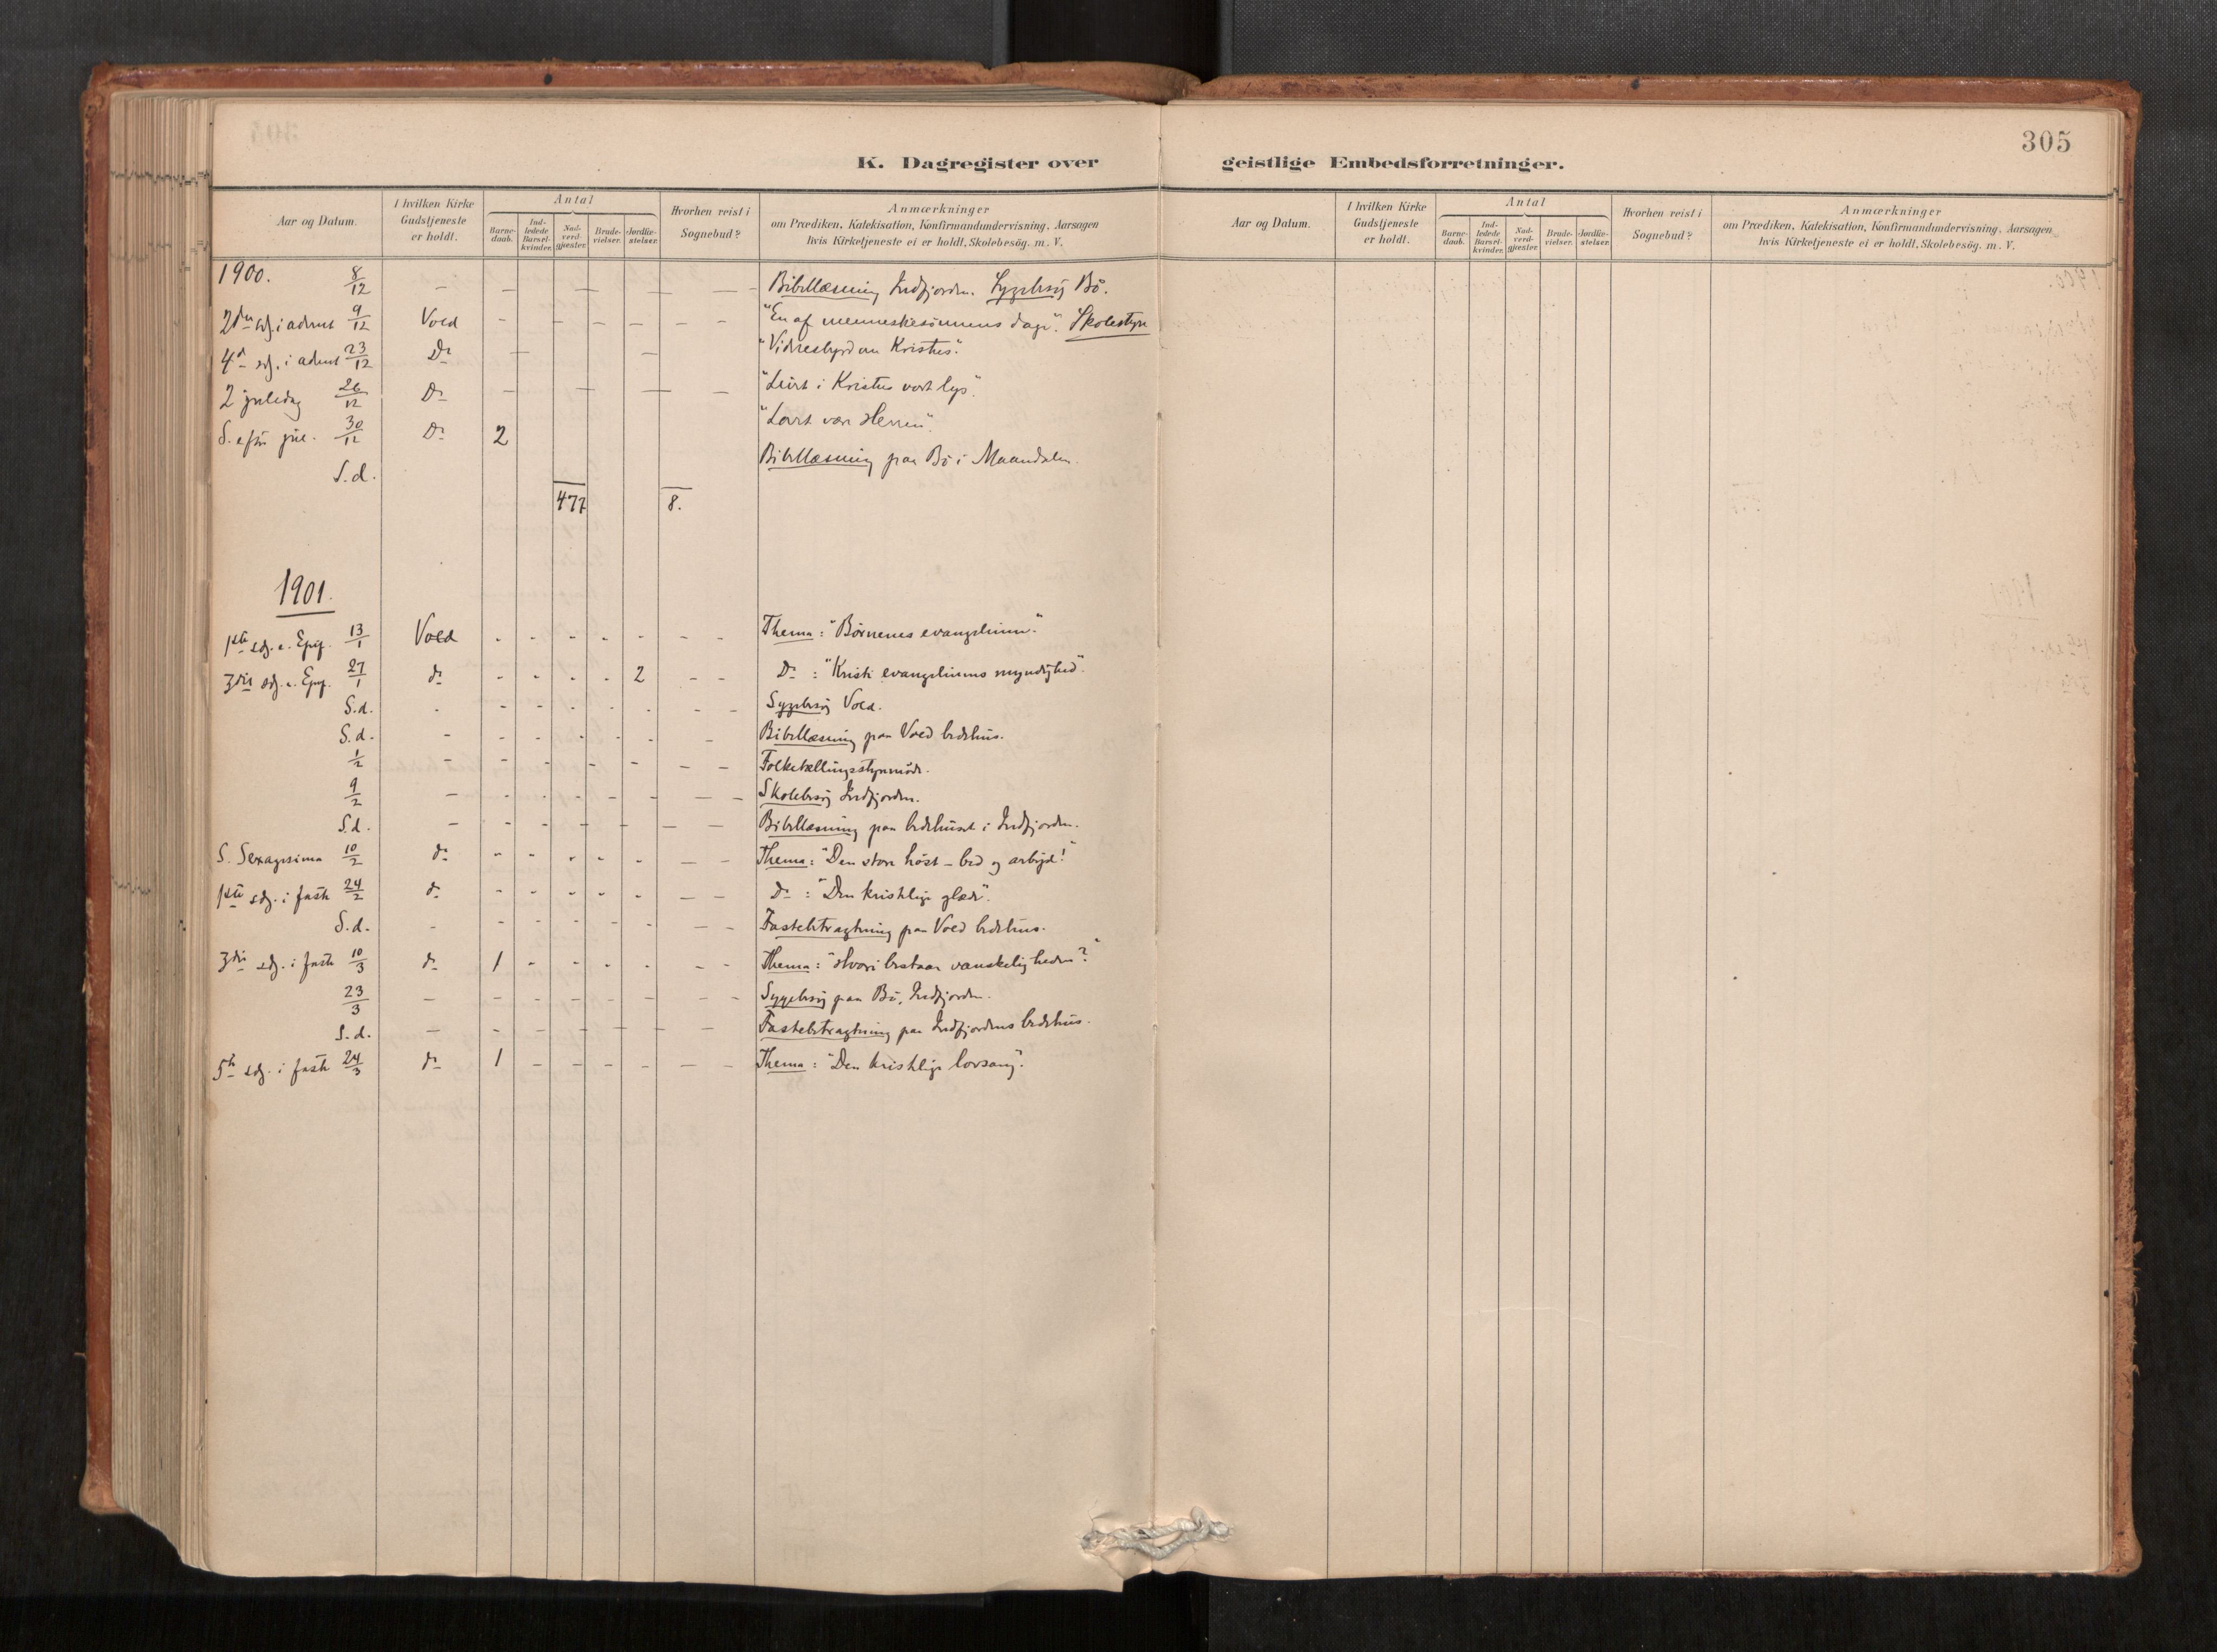 305
K. Dagregister over geistlige Embedsforretninger.
Aar og Datum. I hvilken Kirke Gudstjeneste er holdt. Antal Barne-daab. Ind-ledede Barsel-kvinder. Nad-verd-gjæster. Brude-vielser. Jordfæ-stelser. Hvorhen reist i Sognebud? Anmærkninger om Prædiken, Katekisation, Konfirmandundervisning, Aarsagen hvis Kirketjeneste ei er holdt, Skolebesög. m. V.
1900. 8/12 - - - - - - Bibellæsning Indfjorden. Sygebesög Bö.
2den sdg. i advent 9/12 Vold - - - - - - - "En af menneskesönnens dage". Skolestyre
4de sdg. i advent 23/12 Do - - "Vidnesbyrd om Kristus".
2 juledag 26/12 Do - - - - "Livet i Kristus vort lys".
S. efter jul. 30/12 Do 2 "Lovet være Herren".
S.d. Bibellæsning paa Bö i Maandalen.
477 8.
1901.
1ste sdg. e. Epif. 13/1 Vold - - - - - - - Thema: "Börnenes evangelium."
3die sdg. e. Epif. 27/1 do - - - - 2 - - Do : "Kristi evangeliums myndighed".
S.d. - - - - - - - - Sygebesög Vold.
S.d. - - - - - - - Bibellæsning paa Vold bedehus.
1/2 - - - - - - - - Folketællingsstyremöde.
9/2 - - - - - - - - Skolebesög Indfjorden.
S.d. - - - - - - - - Bibellæsning paa bedehuset i Indfjorden.
S. Sexagesima 10/2 do - - - - - - - Thema: "Den store höst - bed og arbejd!"
1ste sdg. i faste 24/2 do - - - - - - - Do : "Den kristelige glæde".
S.d. - - - - - - - - Fastebetragtning paa Vold bedehus.
3die sdg. i faste 10/3 do 1 - - - - - - Thema: "Hvori bestaar vanskeligheden?"
23/3 - - - - - - - - Sygebesög paa Bö, Indfjorden.
S.d. - - - - - - - - Fastebetragtning paa Indfjordens bedehus.
5te sdg. i faste 24/3 do 1 - - - - - - Thema: "Den kristelige lovsang".
Aar og Datum. I hvilken Kirke Gudstjeneste er holdt. Antal Barne-daab. Ind-ledede Barsel-kvinder. Nad-verd-gjæster. Brude-vielser. Jordfæ-stelser. Hvorhen reist i Sognebud? Anmærkninger om Prædiken, Katekisation, Konfirmandundervisning, Aarsagen hvis Kirketjeneste ei er holdt, Skolebesög. m. V.